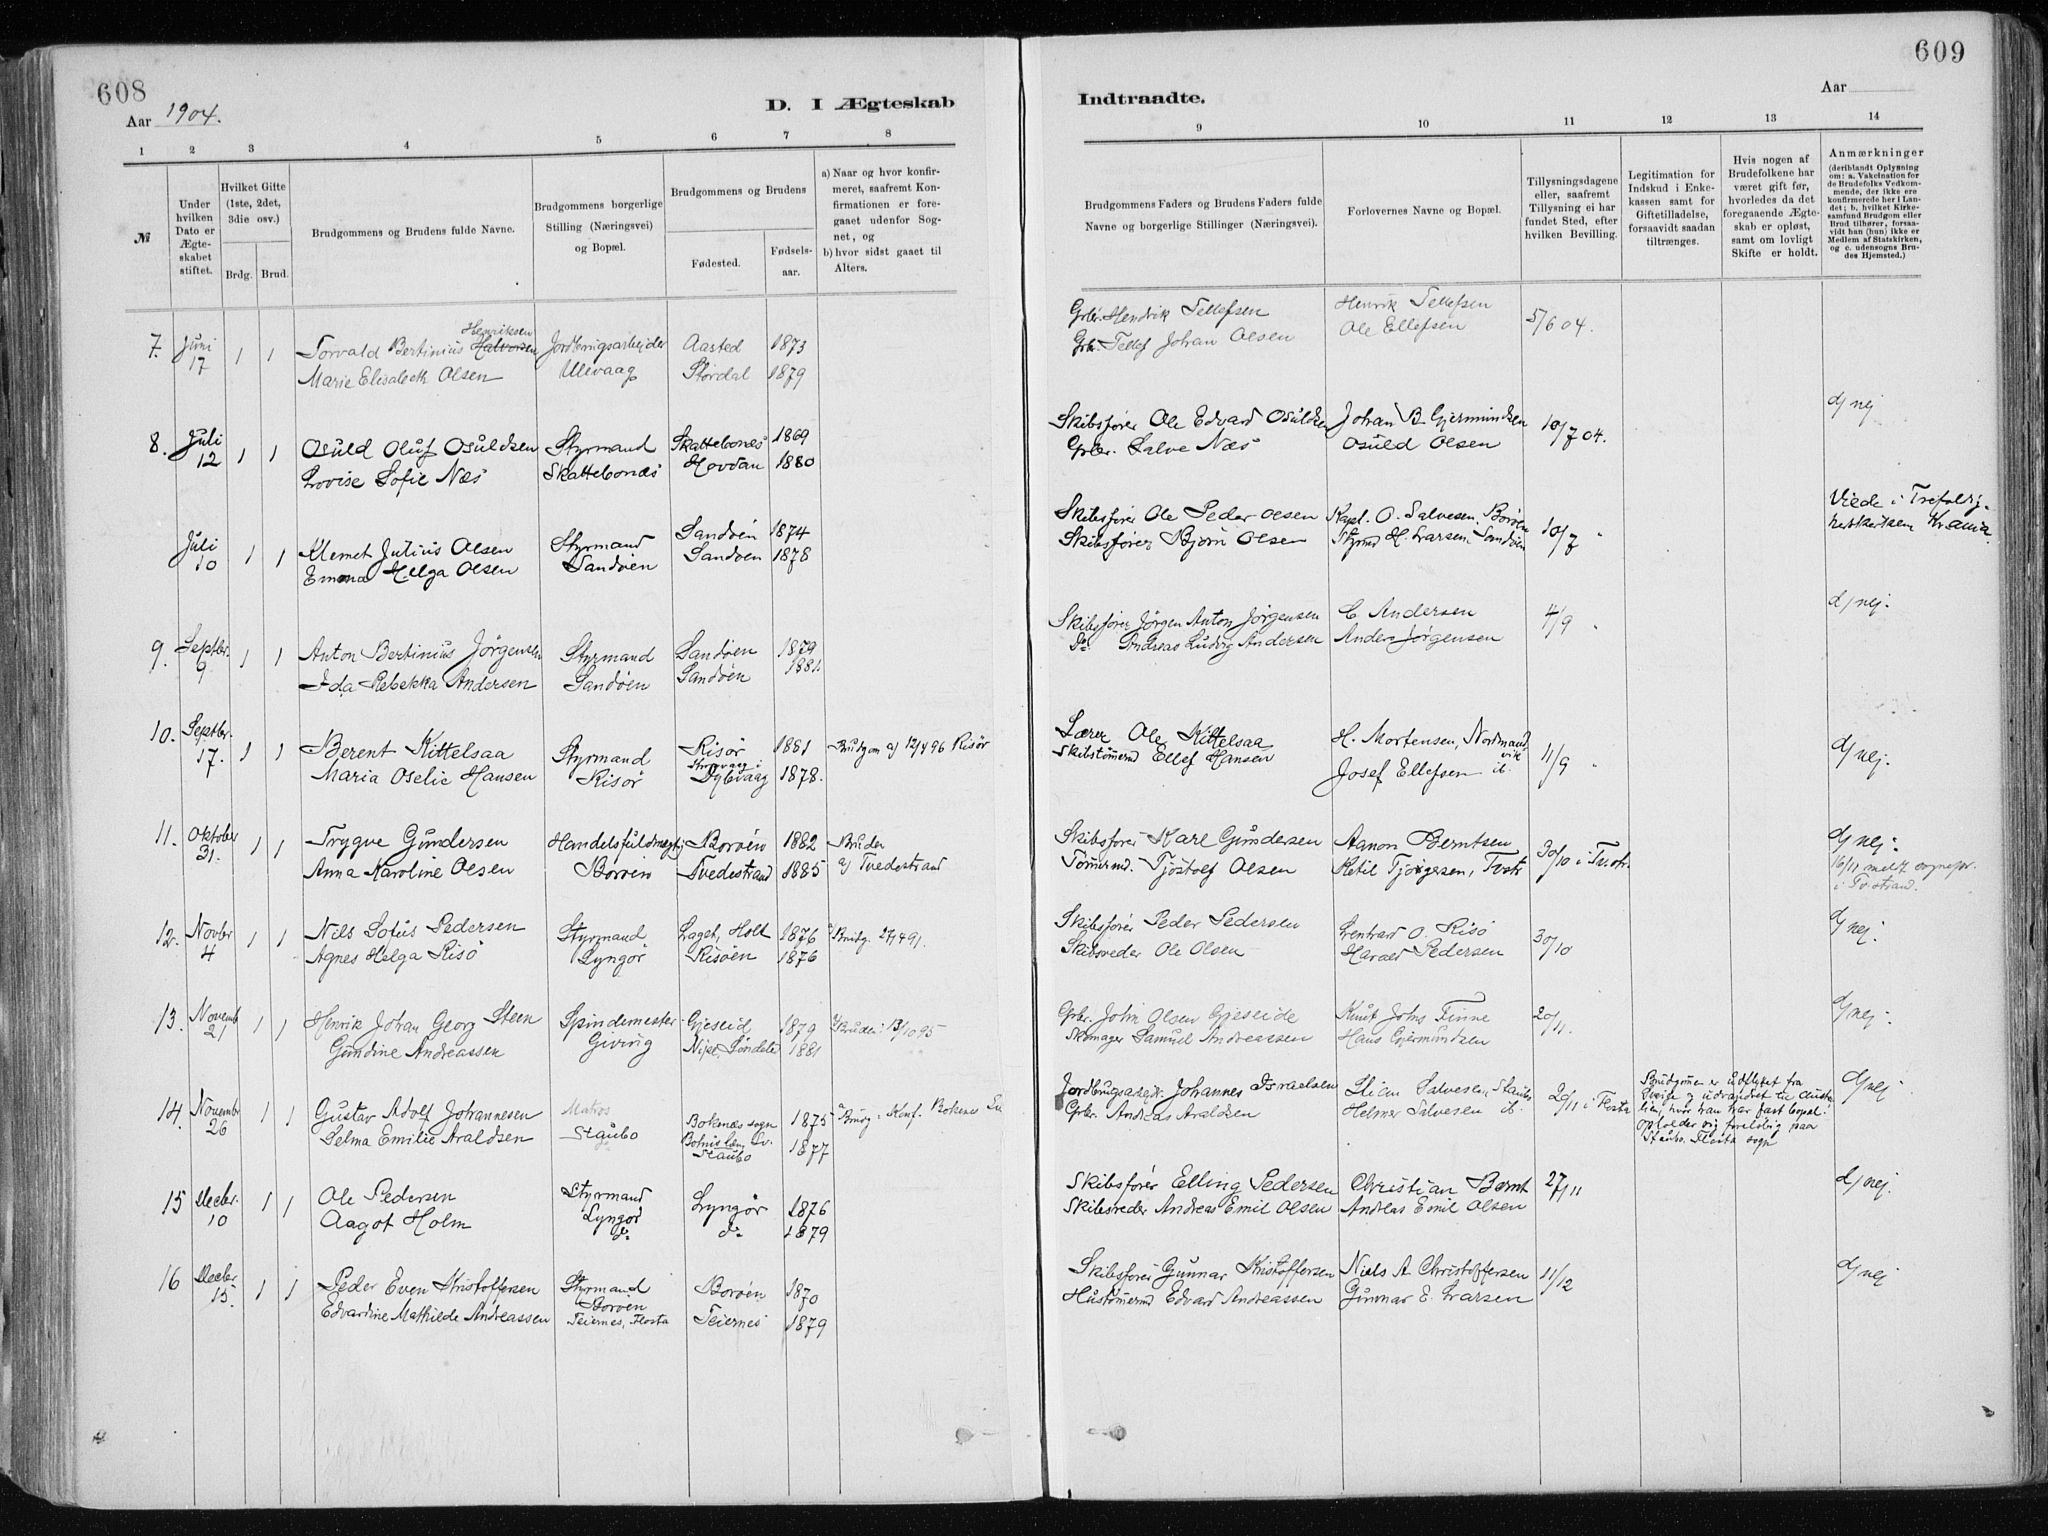 608
Aar 1904.
D. I Ægteskab
1 2 3 4 5 6 7 8
№
Under hvilken Dato er Ægteskabet stiftet.
Hvilket Gifte (1ste, 2det, 3die osv.)
Brdg. Brud.
Brudgommens og Brudens fulde Navne.
Brudgommens borgerlige Stilling (Næringsvei) og Bopæl.
Brudgommens og Brudens
Fødested.
Fødselsaar.
a) Naar og hvor konfirmeret, saafremt Konfirmationen er foregaaet udenfor Sognet, og
b) hvor sidst gaaet til Alters.
7. Juni 17 1 1 Torvald Bertinius Halvorsen Henriksen Jordbrugsarbejder Aasted 1873
Marie Elisabeth Olsen Ulevaag Stordal 1879
8. Juli 12 1 1 Osuld Oluf Osuldsen Styrmand Skattebonæs 1869
Lovise Sofie Næs Skattebonæs Hovdan 1880
Juli 10 1 1 Klemet Julius Olsen Styrmand Sandøen 1874
Emma Helga Olsen Sandøen Sandøen 1878
9. Septbr. 9 1 1 Anton Bertinius Jörgensen Styrmand Sandøen 1879
Ida Rebekka Andersen Sandøen Sandøen 1881
10. Septbr. 17. 1 1 Berent Kittelsaa Styrmand Risør 1881 Brudgom a) 12/4 96 Risör
Maria Oselie Hansen Risör Dybvaag 1878.
11. Oktober 31. 1 1 Trygve Gundersen Handelsfuldmegtig Borøen 1882 Bruden
Anna Karoline Olsen Borøen Tvedestrand 1885 a) Tvedestrand
12. Novbr 4 1 1 Nils Lotus Pedersen Styrmand Laget, Holt 1876 Brudg. 27/4 91.
Agnes Helga Risö Lyngör Risöen 1876
13. Novemb 21 1 1 Henrik Johan Georg Steen Spindemester Gjeseid 1879 Bruden: 13/10 95
Gundine Andreassen Giving Söndeled 1881
14. Novembr 26 1 1 Gustav Adolf Johannesen Matros Boknæs sogn 1875 Brudg: Konf. Boknes
Selma Emilie Araldsen Staubo Staubo 1877
15 Decbr. 10 1 1 Ole Pedersen Styrmand Lyngör 1876
Aagot Holm Lyngör do 1879
16 Decbr 15. 1 1 Peder Even Kristoffersen Styrmand Borøen Borøen 1870
Edvardine Mathilde Andreassen Teiernes, Flosta Teiernes 1879
609
Indtraadte.
Aar
9 10 11 12 13 14
Brudgommens Faders og Brudens Faders fulde Navne og borgerlige Stillinger (Næringsvei).
Forlovernes Navne og Bopæl.
Tillysningsdagene eller, saafremt Tillysning ei har fundet Sted, efter hvilken Bevilling.
Legitimation for Indskud i Enkekassen samt for Giftetilladelse, forsaavidt saadan tiltrænges.
Hvis nogen af Brudefolkene har været gift før, hvorledes da det foregaaende Ægteskab er opløst, samt om lovligt Skifte er holdt.
Anmærkninger (deriblandt Oplysning om: a. Vakcination for de Brudefolks Vedkommende, der ikke ere konfirmerede her i Landet; b. hvilket Kirkesamfund Brudgom eller Brud tilhører, forsaavidt han (hun) ikke er Medlem af Statskirken, og c. udensogns Brudes Hjemsted.)
Grbr. Hendrik Tellefsen Henrik Tellefsen 5/6 04.
Grbr. Tellef Johan Olsen Ole Ellefsen
Skibsfører Ole Edvard Osuldsen Johan B. Gjermundsen 10/7 04. d) nej
Grbr. Salve Næs Osuld Olsen
Skibsfører Ole Peder Olsen Kapt. O. Salvesen, Borøen 10/7 " Viede i Trefoldighedskirken Kr.ania.
Skibsfører Bjørn Olsen Styrmd H. Larsen, Sandøen
Skibsfører Jörgen Anton Jörgensen C. Andersen 4/9 " d) nej.
Do Andreas Ludvig Andersen Anders Jørgensen
Lærer Ole Kittelsaa H. Mortensen, Nordmandvik 11/9 " d) nej.
Skibstömmermd Ellef Hansen Josef Ellefsen ib.
Skibsfører Karl Gundersen Aanon Berntsen 30/10 i Tv.str. d) nej.
Tömmermd. Tjöstolf Olsen Ketil Tjörgesen, Tvstr 16/11 meldt sognepr. i Tv.strand.
Skibsfører Peder Pedersen Lenhard O. Risö 30/10 d) nej.
Skibsreder Ole Olsen Harald Pedersen
Grbr. John Olsen Gjeseide Knut Johns Finne 20/11. d) nej.
Skomager Samuel Andreassen Hans Gjermundsen
Jordbrugsarbejd. Johannes Israelsen Salvesen, Staubo 20/11 i Flosta Brudgommen er udflyttet fra Sverige og udvandret til Australien, hvor han har fast bopæl: opholder sig foreløbig paa Staubo, Flosta sogn d) nej
Grbr. Andreas Araldsen Helmer Salvesen ib.
Skibsfører Elling Pedersen Christian Bernt 27/11 d) nej.
Skibsreder Andreas Emil Olsen Andreas Emil Olsen
Skibsfører Gunnar Kristoffersen Niels A. Christoffersen 11/12 d) nej
Hustömmermd Edvard Andreassen Gunnar E. Larsen